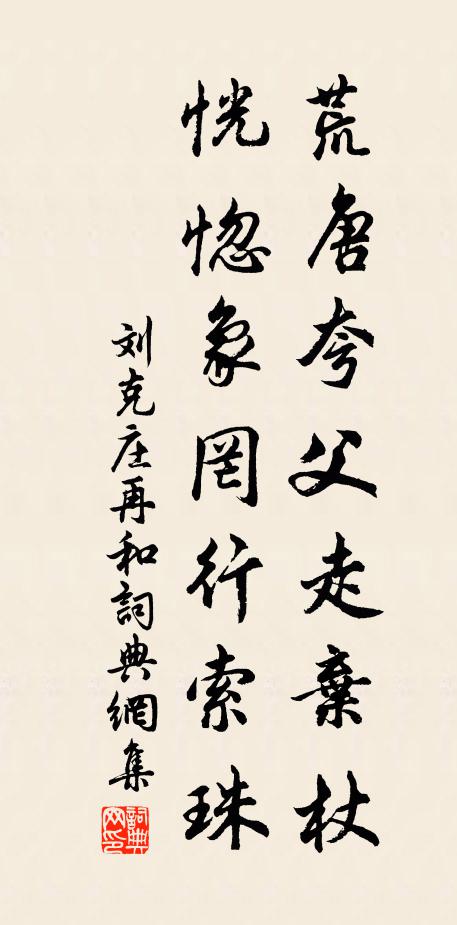 荒唐夸父走棄杖
恍惚象罔行索珠
刘克庄再和詞典網集
詞典网印